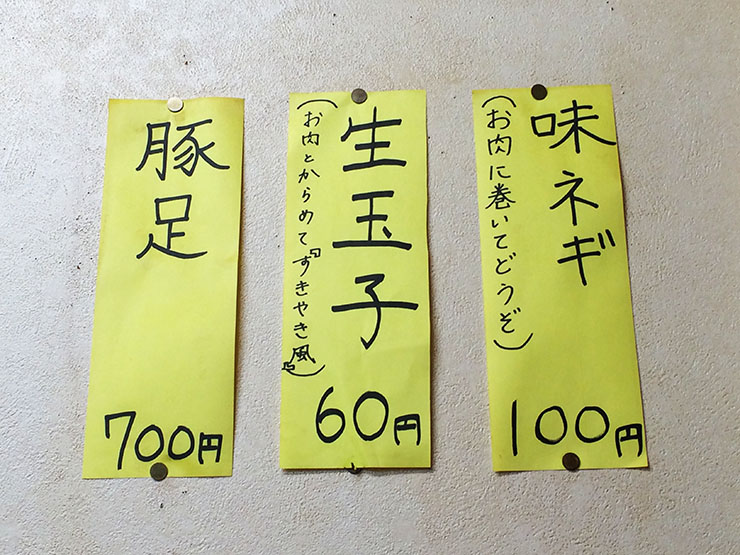 味ネギ
(お肉に巻いてどうぞ)
100円
生玉子
(お肉とからめて『すきやき風』)
60円
豚足
700円